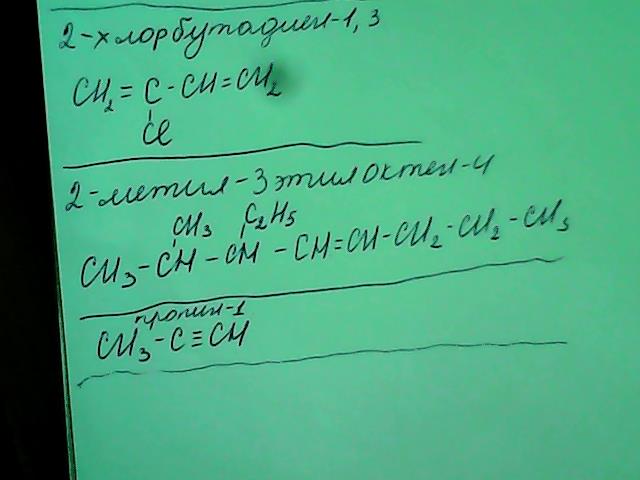 2-хлорбутадиен-1,3
CH₂=C-CH=CH₂
Cl
2-метил-3этилоктен-4
CH₃ C₂H₅
CH₃-CH-CH-CH=CH-CH₂-CH₂-CH₃
пропин-1
CH₃-C≡CH